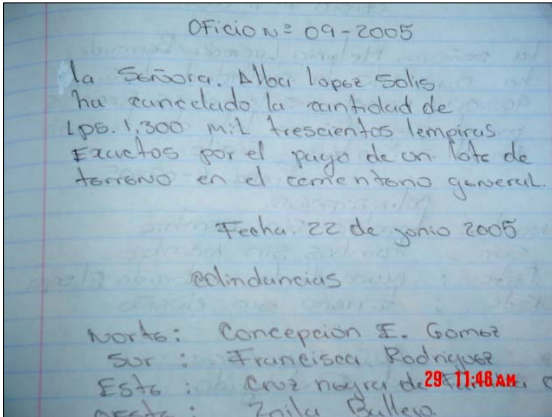 Oficio Nº 09-2005
la Señora. Alba Lopez Solis
ha cancelado la cantidad de
Lps. 1,300 mil trescientos lempiras
Exactos por el pago de un lote de
terreno en el cementerio general.
Fecha. 22 de junio 2005
colindancias
Norte: Concepción E. Gomez
Sur : Francisca Rodriguez
Este : Cruz negra de
29 11:46 AM
Oeste :